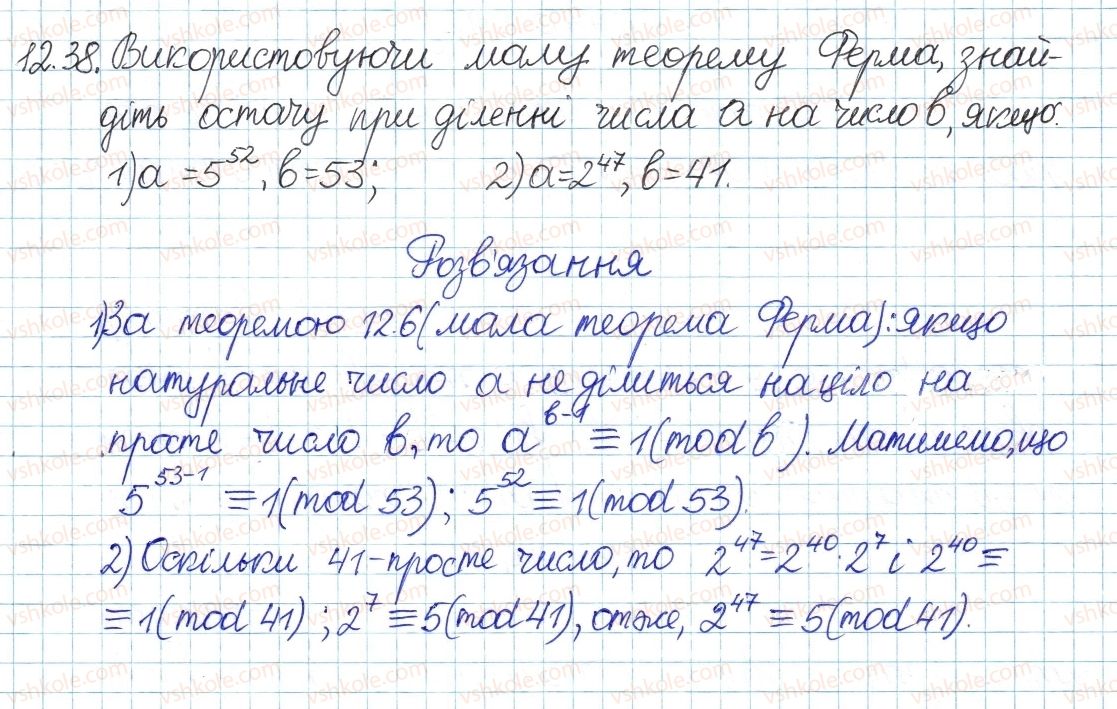 12.38. Використовуючи малу теорему Ферма, знай-
діть остачу при діленні числа a на число b, якщо:
1) a = 5^52, b = 53; 2) a = 2^47, b = 41.
Розв'язання
1) За теоремою 12.6 (мала теорема Ферма): якщо
натуральне число a не ділиться націло на
просте число b, то a^(b-1) ≡ 1 (mod b). Матимемо, що
5^(53-1) ≡ 1 (mod 53); 5^52 ≡ 1 (mod 53).
2) Оскільки 41 - просте число, то 2^47 = 2^40 · 2^7 і 2^40 ≡
≡ 1 (mod 41); 2^7 ≡ 5 (mod 41), отже, 2^47 ≡ 5 (mod 41).